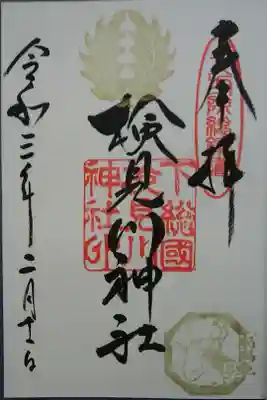 奉拝
検見川神社
下總國
検見川
神社印
令和三年二月十一日